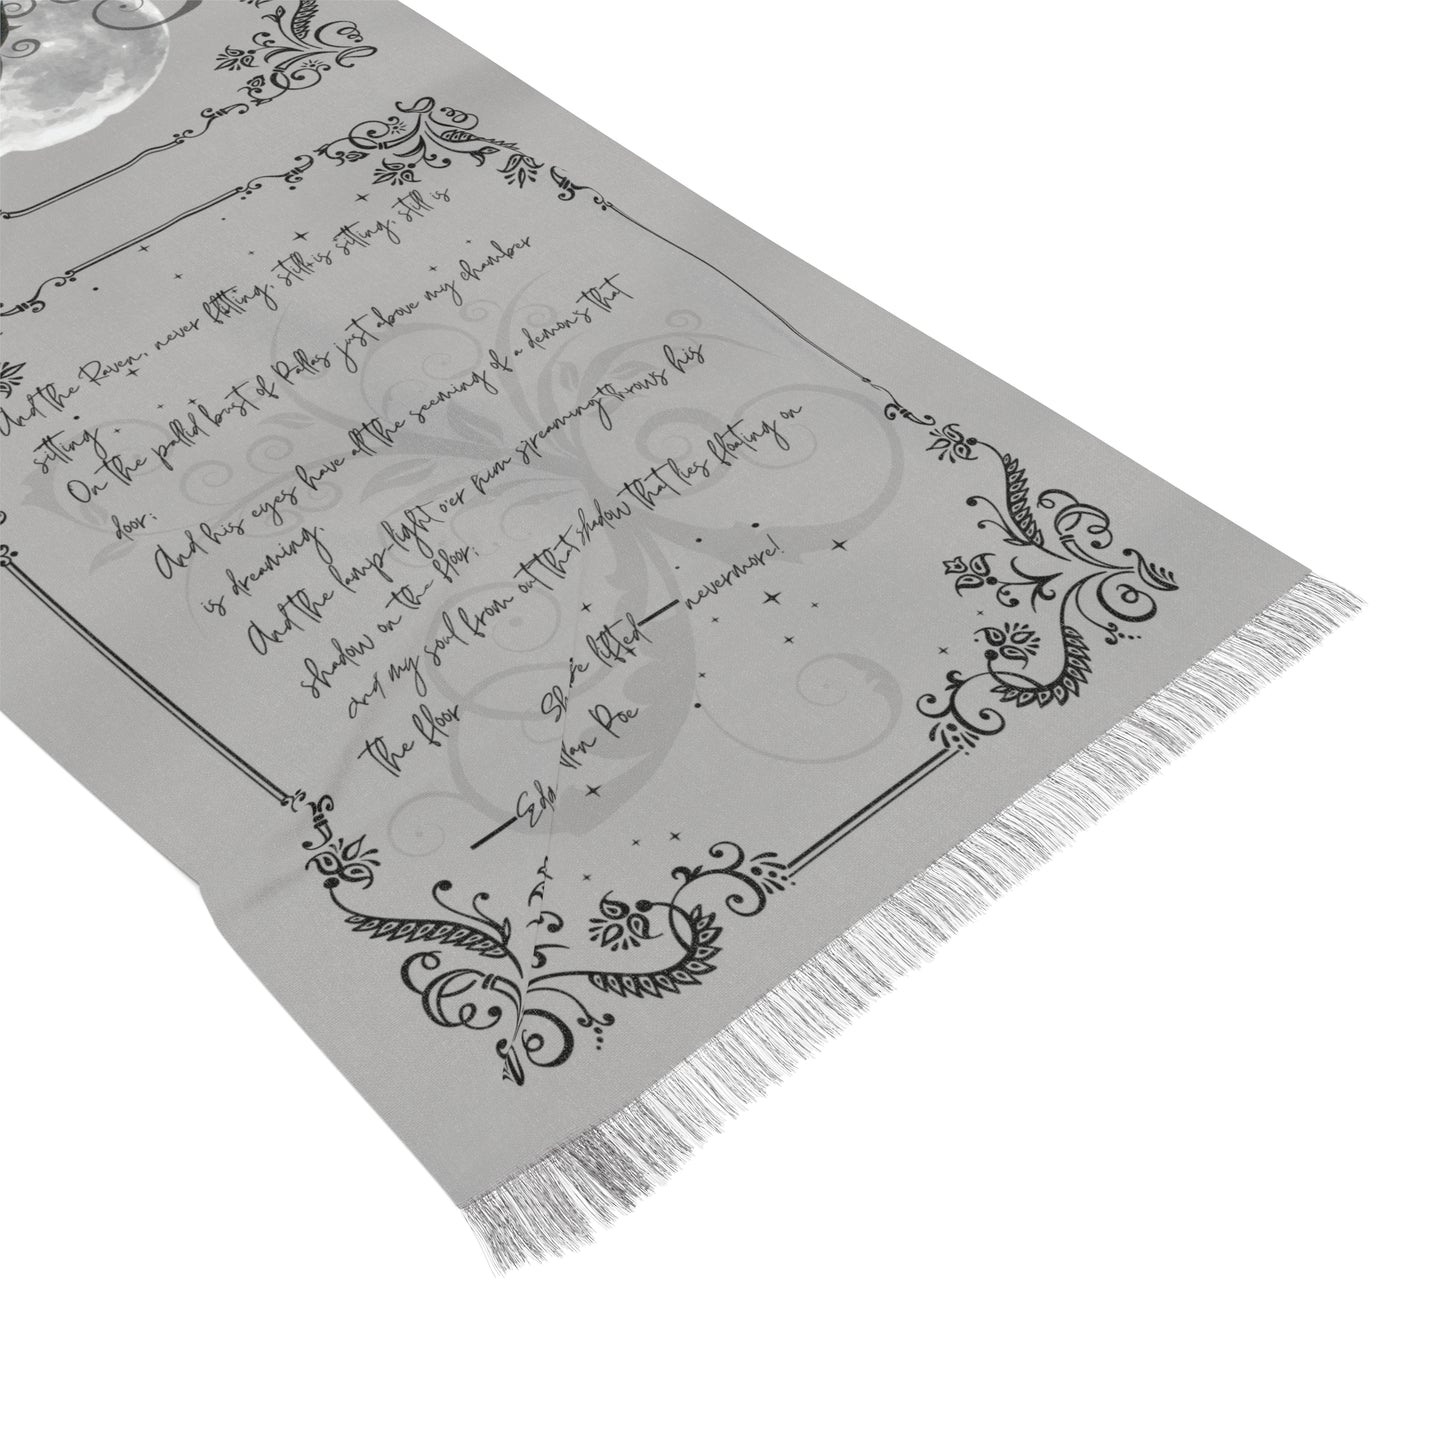 And the Raven, never flitting, still is sitting, still is
sitting
On the pallid bust of Pallas just above my chamber
door;
And his eyes have all the seeming of a demon's that
is dreaming,
And the lamp-light o'er him streaming throws his
shadow on the floor;
and my soul from out that shadow that lies floating on
the floor
lifted—nevermore!
Poe